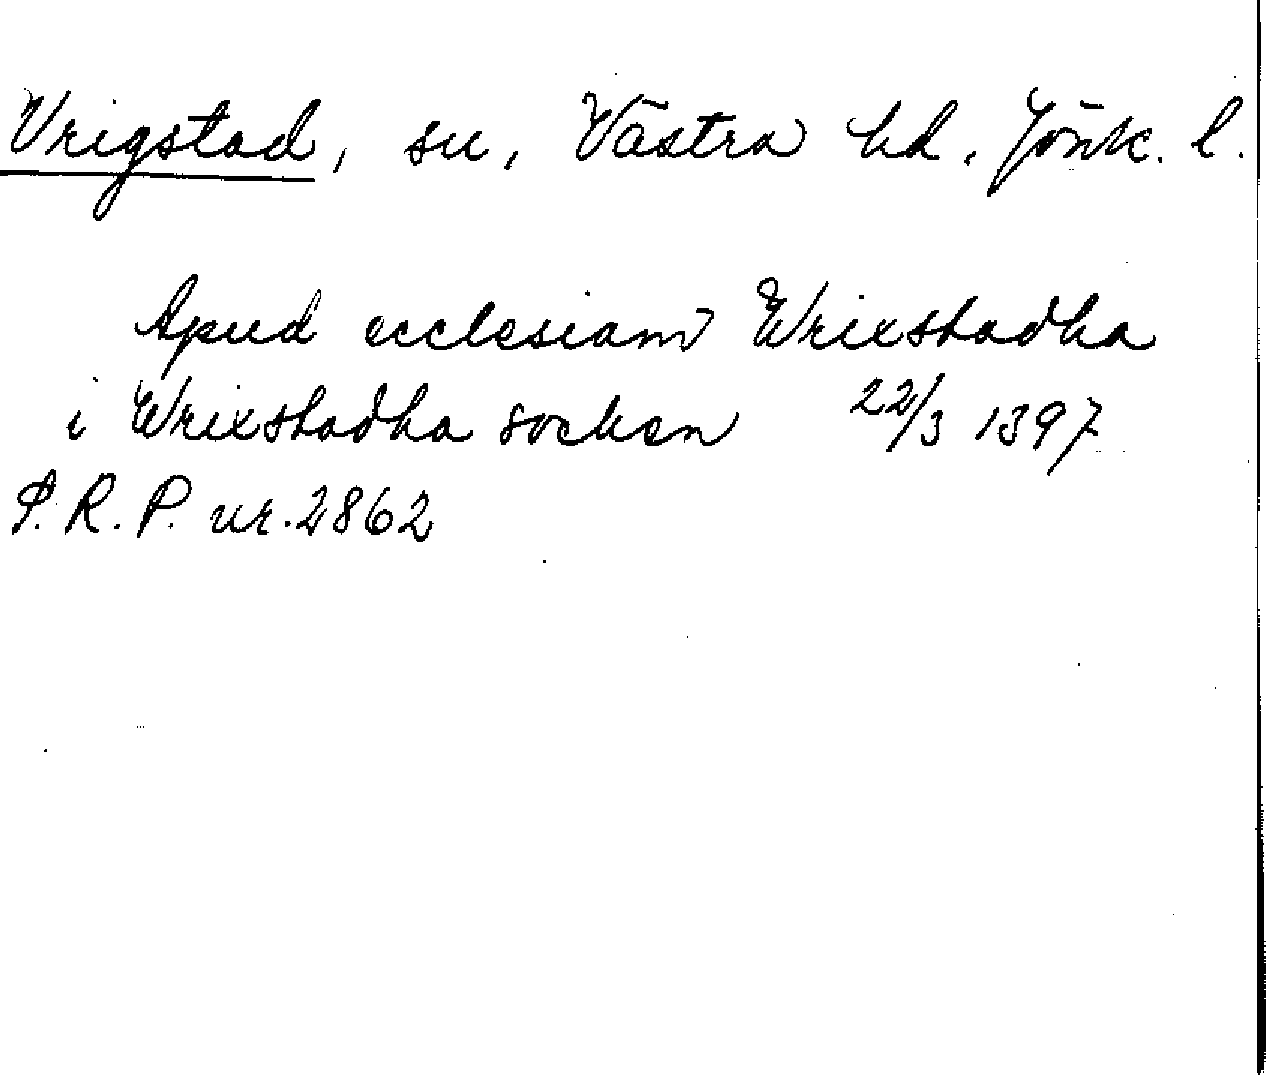 Vrigstad, sn, Västra hd. Jönk. l.
Apud ecclesiam Wrixstadha
i Wrixstadha socken 22/3 1397
S.R.P. nr. 2862